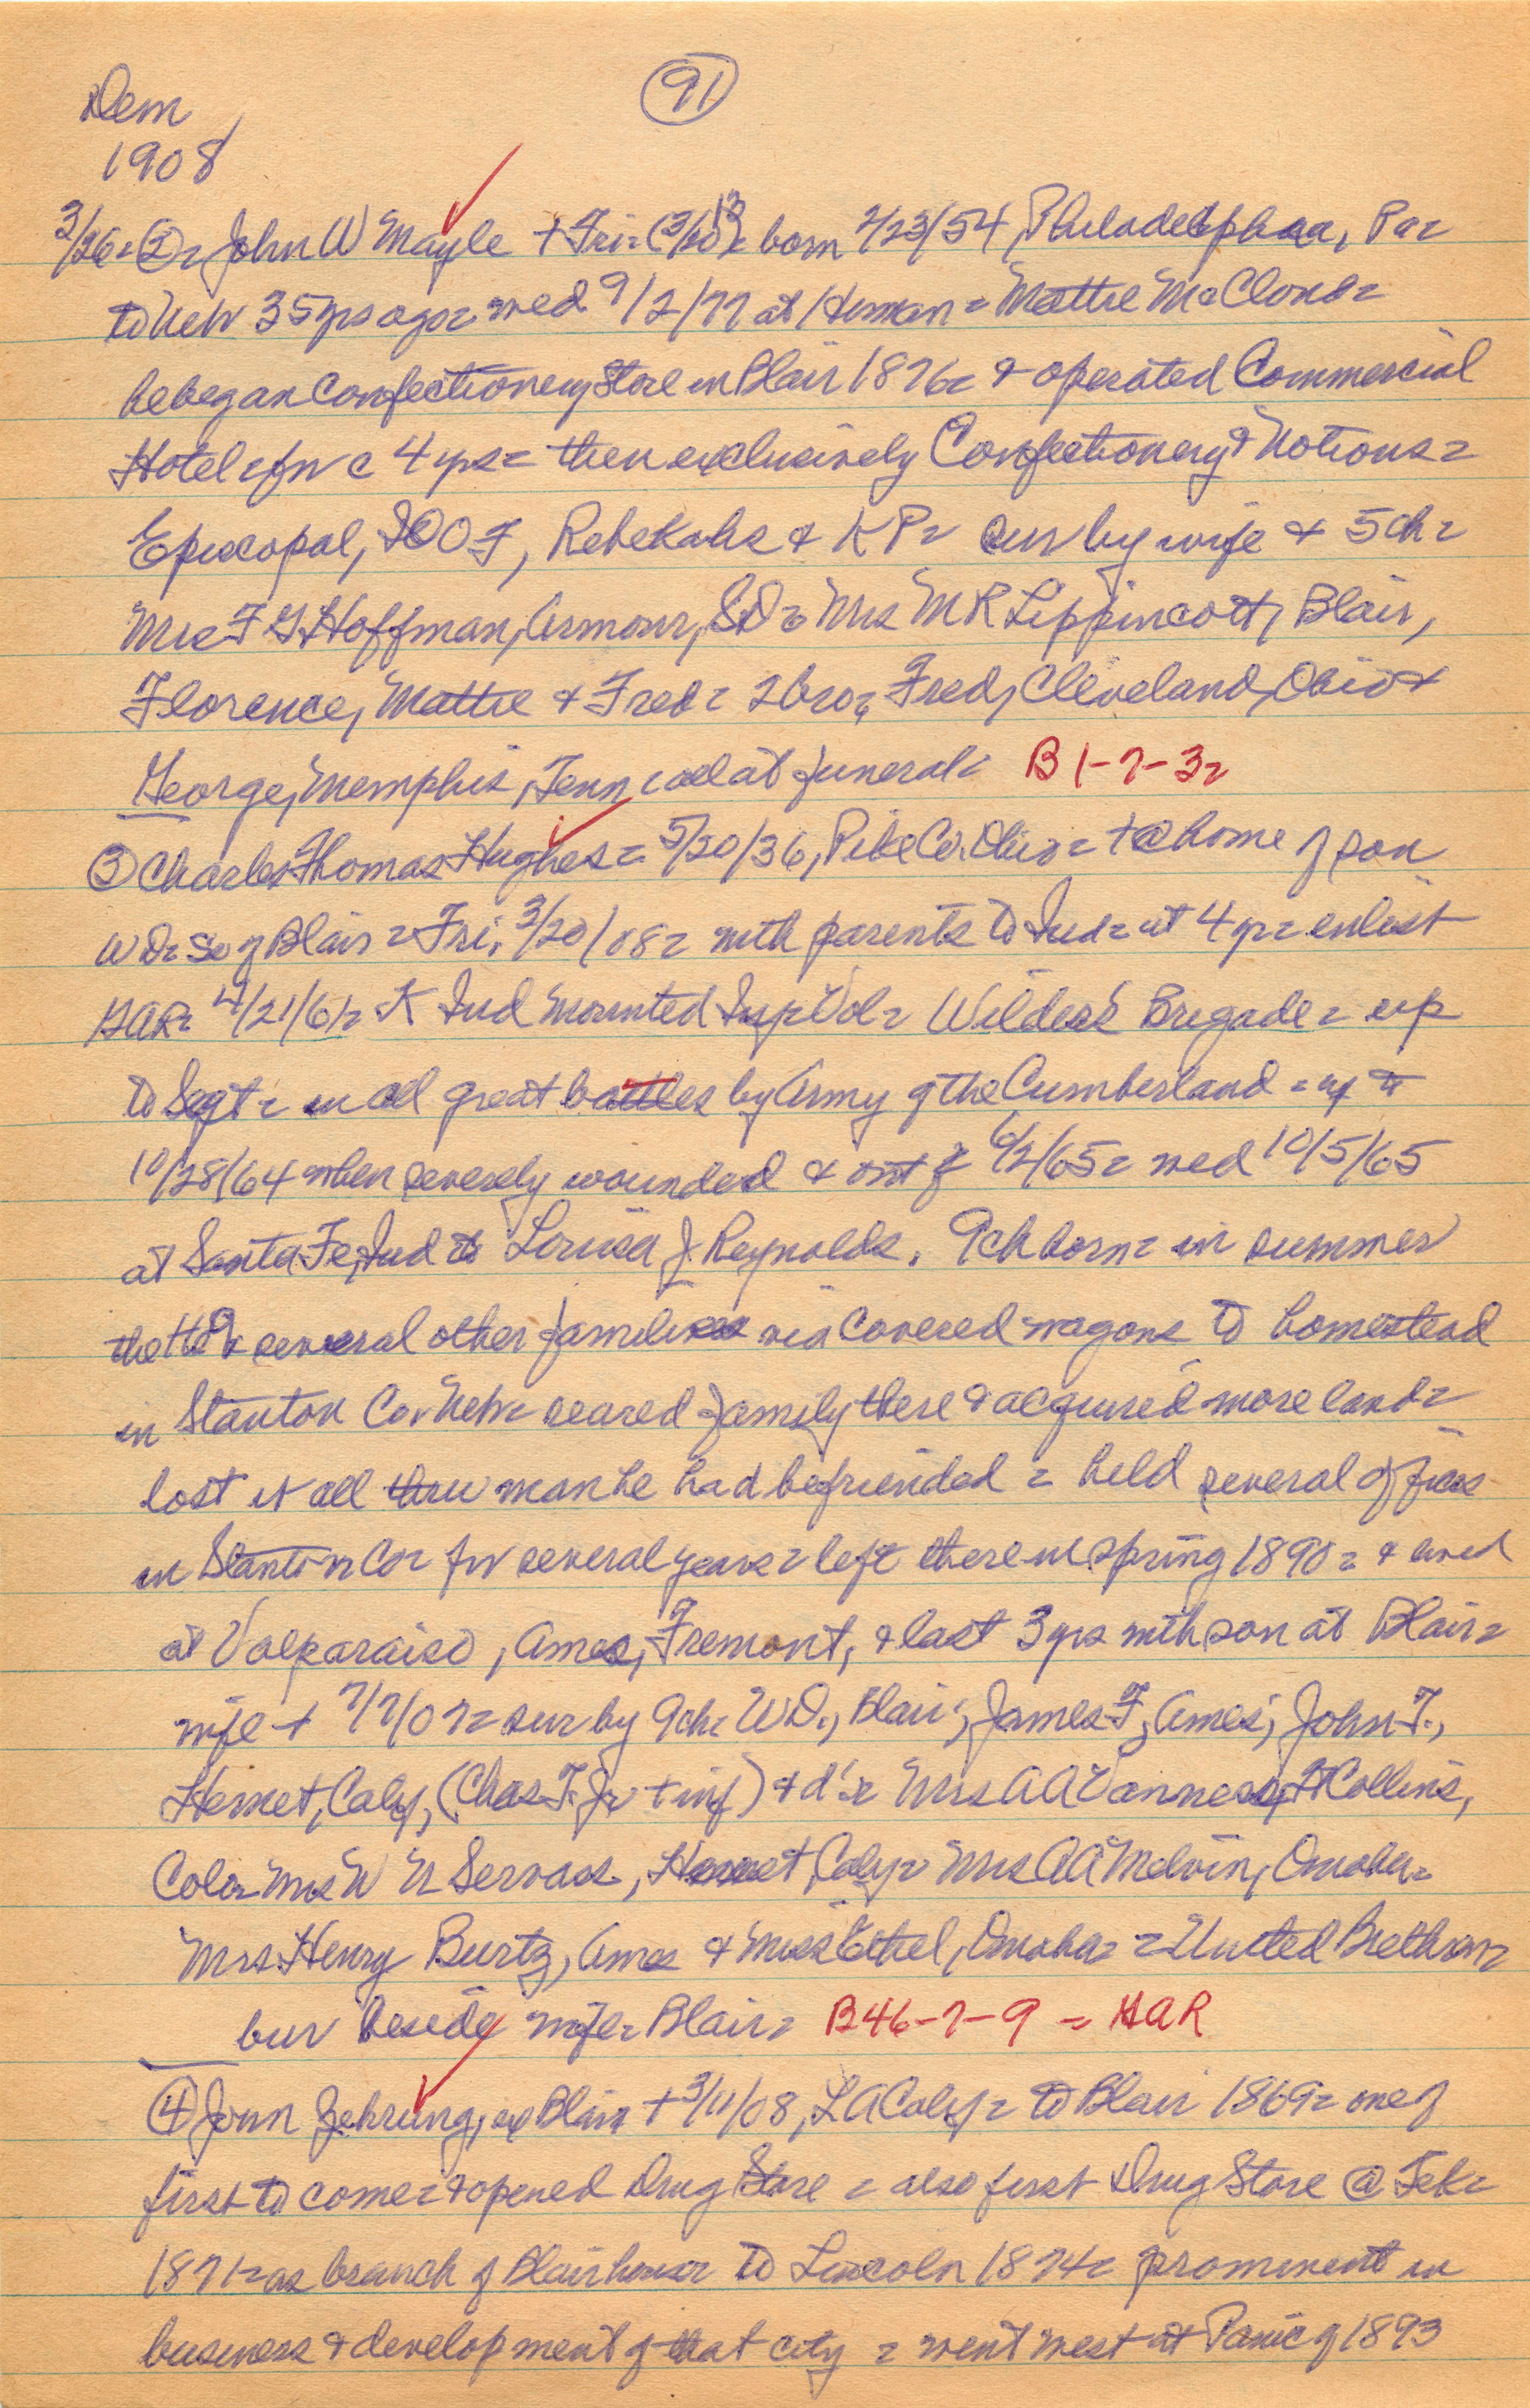 Dem
91
1908
3/26= ②= John W Mayle + Fri= (3/20)= 13 born 2/23/54, Philadelphaa, Pa=
to Neb 35 yrs ago= wed 9/2/77 at Herman= Mattie McCloud=
he began Confectionery Store in Blair 1876= & operated Commercial
Hotel= for c 4 yrs= then exclusively Confectionery & Notions=
Episcopal, IOOF, Rebekahs & KP= sur by wife & 5 ch=
Mrs F G Hoffman, Armour, SD= Mrs M R Lippincott, Blair,
Florence, Mattie & Fred= 2 bro, Fred, Cleveland, Ohio &
George, Memphis, Tenn= all at funeral= B 1-7-3=
③ Charles Thomas Hughes= 5/20/36, Pike Co. Ohio= + @ home of son
WD= So of Blair= Fri, 3/20/08= with parents to Ind= at 4 yr= enlist
GAR= 4/21/61= K Ind Mounted Inf= Vol= Wilder's Brigade= up
to Segt= in all great battles by Army of the Cumberland= up to
10/28/64 when severely wounded & out 6/2/65= wed 10/5/65
at Santa Fe, Ind to Louisa J. Reynolds. 9 ch born= in summer
several other families via Covered wagons to homestead
in Stanton Co. Neb= reared family there & acquired more land=
lost it all thru man he had befriended= held several offices
in Stanton Co= for several years= left there in spring 1890= & lived
at Valparaiso, Ames, Fremont, & last 3 yrs with son at Blair=
wife + 7/7/07= sur by 9 ch= WD., Blair; James F, Ames; John T.,
Hemet, Calif, (Chas. T. Jr + inf) & d's= Mrs A A Vanness, Ft Collins,
Colo= Mrs W N Servaes, Hemet, Calif= Mrs AA Melvin, Omaha=
Mrs Henry Burtz, Ames & Miss Ethel, Omaha= = United Brethren=
bur beside wife= Blair= B46-7-9 = GAR
④ John Gehrung, ex Blair + 3/11/08, LA Calif= to Blair 1869= one of
first to come= & opened Drug Store= also first Drug Store @ Tek=
1871= as branch of Blair house to Lincoln 1874= prominent in
business & development of that city= went west at Panic of 1893